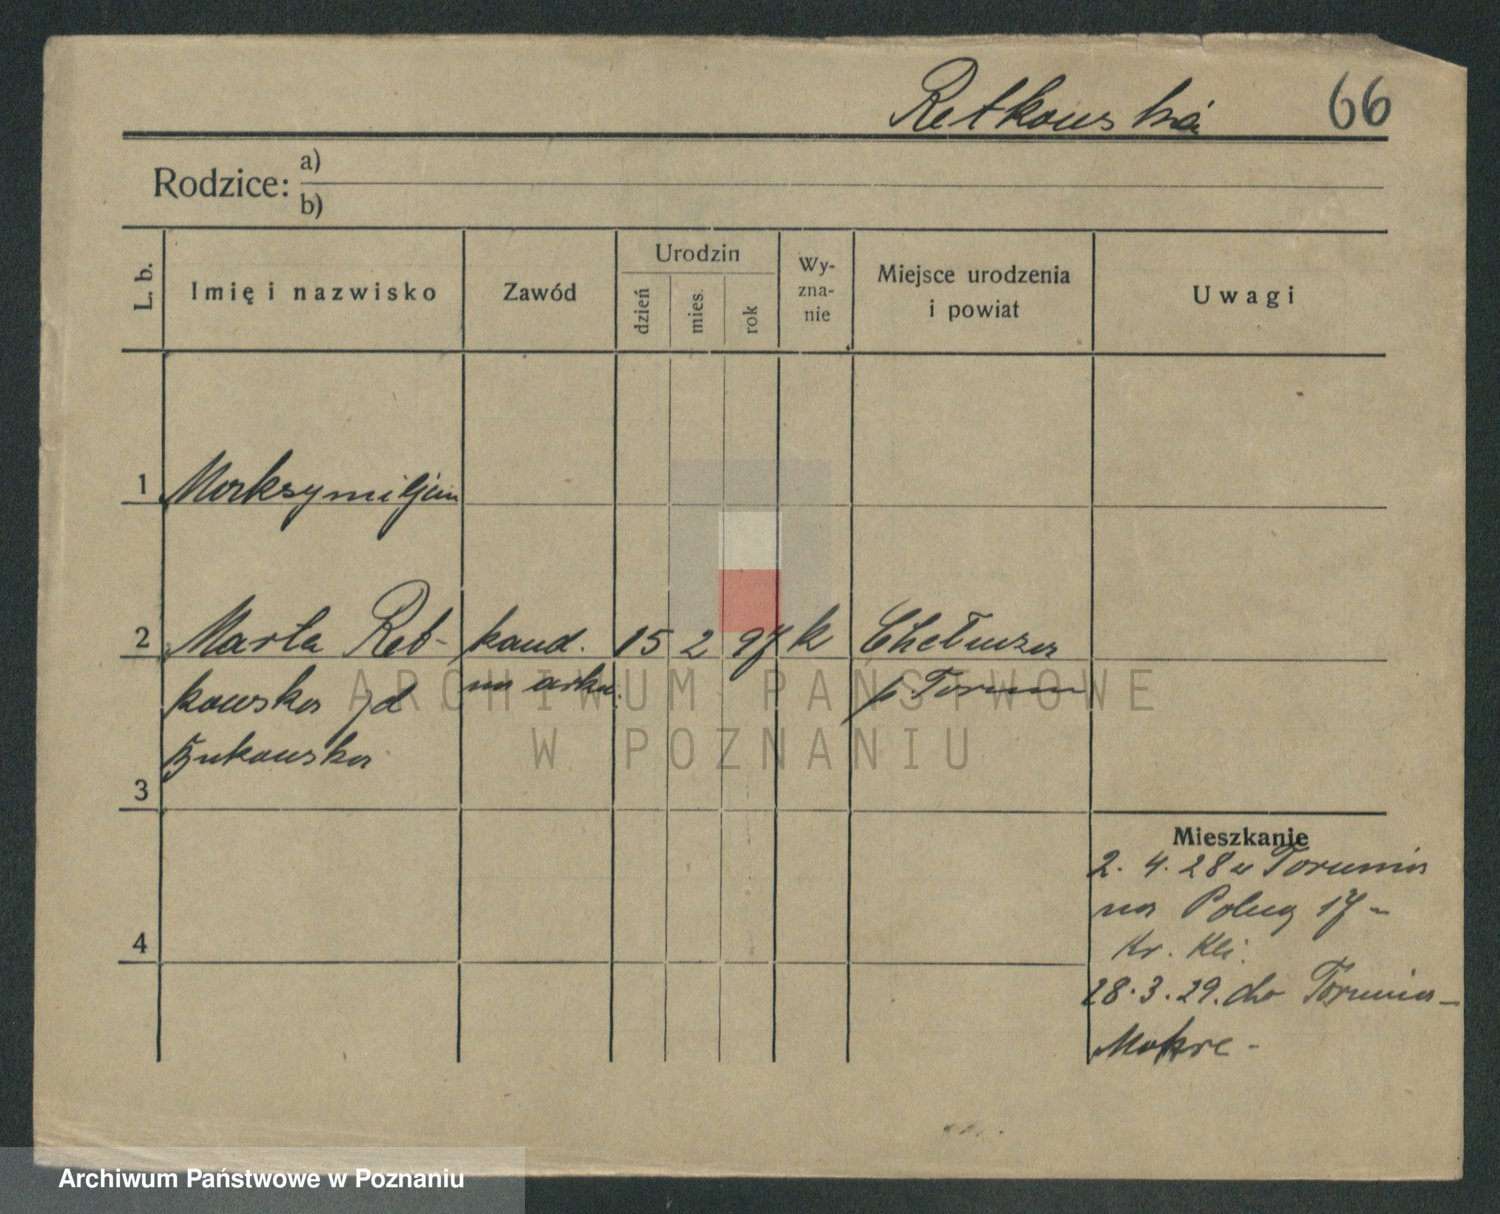 Retkowska 66
Rodzice: a)
b)
L. b.
Imię i nazwisko
Zawód
Urodzin
dzień
mies.
rok
Wy-
zna-
nie
Miejsce urodzenia
i powiat
Uwagi
1 Maksymiljan
2 Marta Ret- kand. 15 2 97 k Chełmża
kowska zd na p Toruń
Bukowska
3
Mieszkanie
2. 4. 28 z Torunia
na 17 -
Kr. Kli.
4
28. 3. 29. do Torunia -
Mokre -
ARCHIWUM PAŃSTWOWE
W POZNANIU
Archiwum Państwowe w Poznaniu